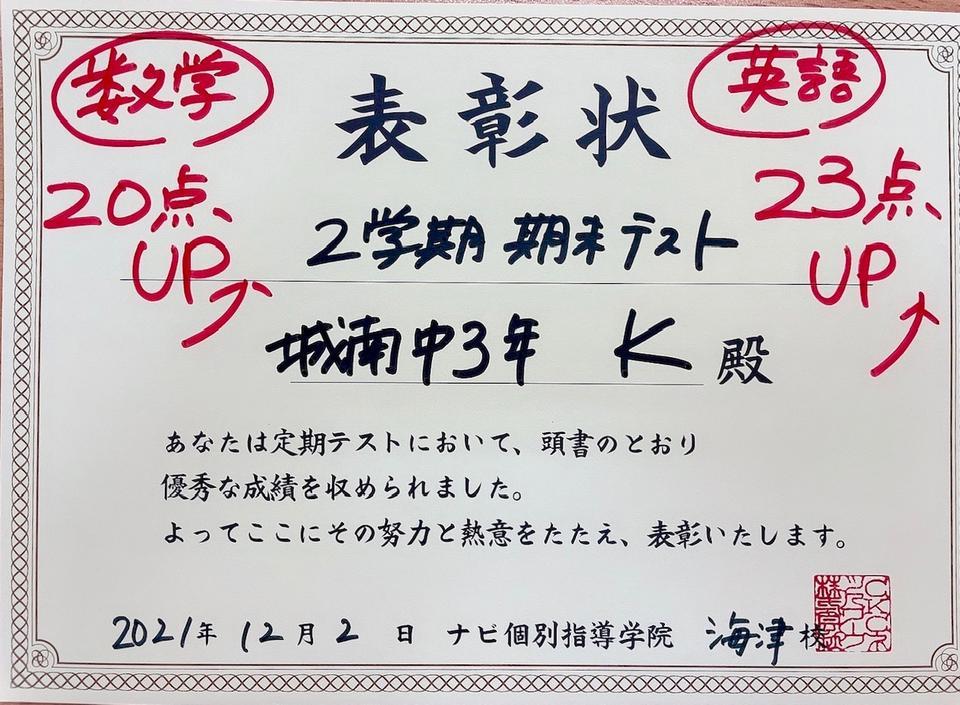 数学
20点
UP
英語
23点
UP
表彰状
2学期 期末テスト
城南中3年 K 殿
あなたは定期テストにおいて、頭書のとおり
優秀な成績を収められました。
よってここにその努力と熱意をたたえ、表彰いたします。
2021年 12月 2日 ナビ個別指導学院 海津校